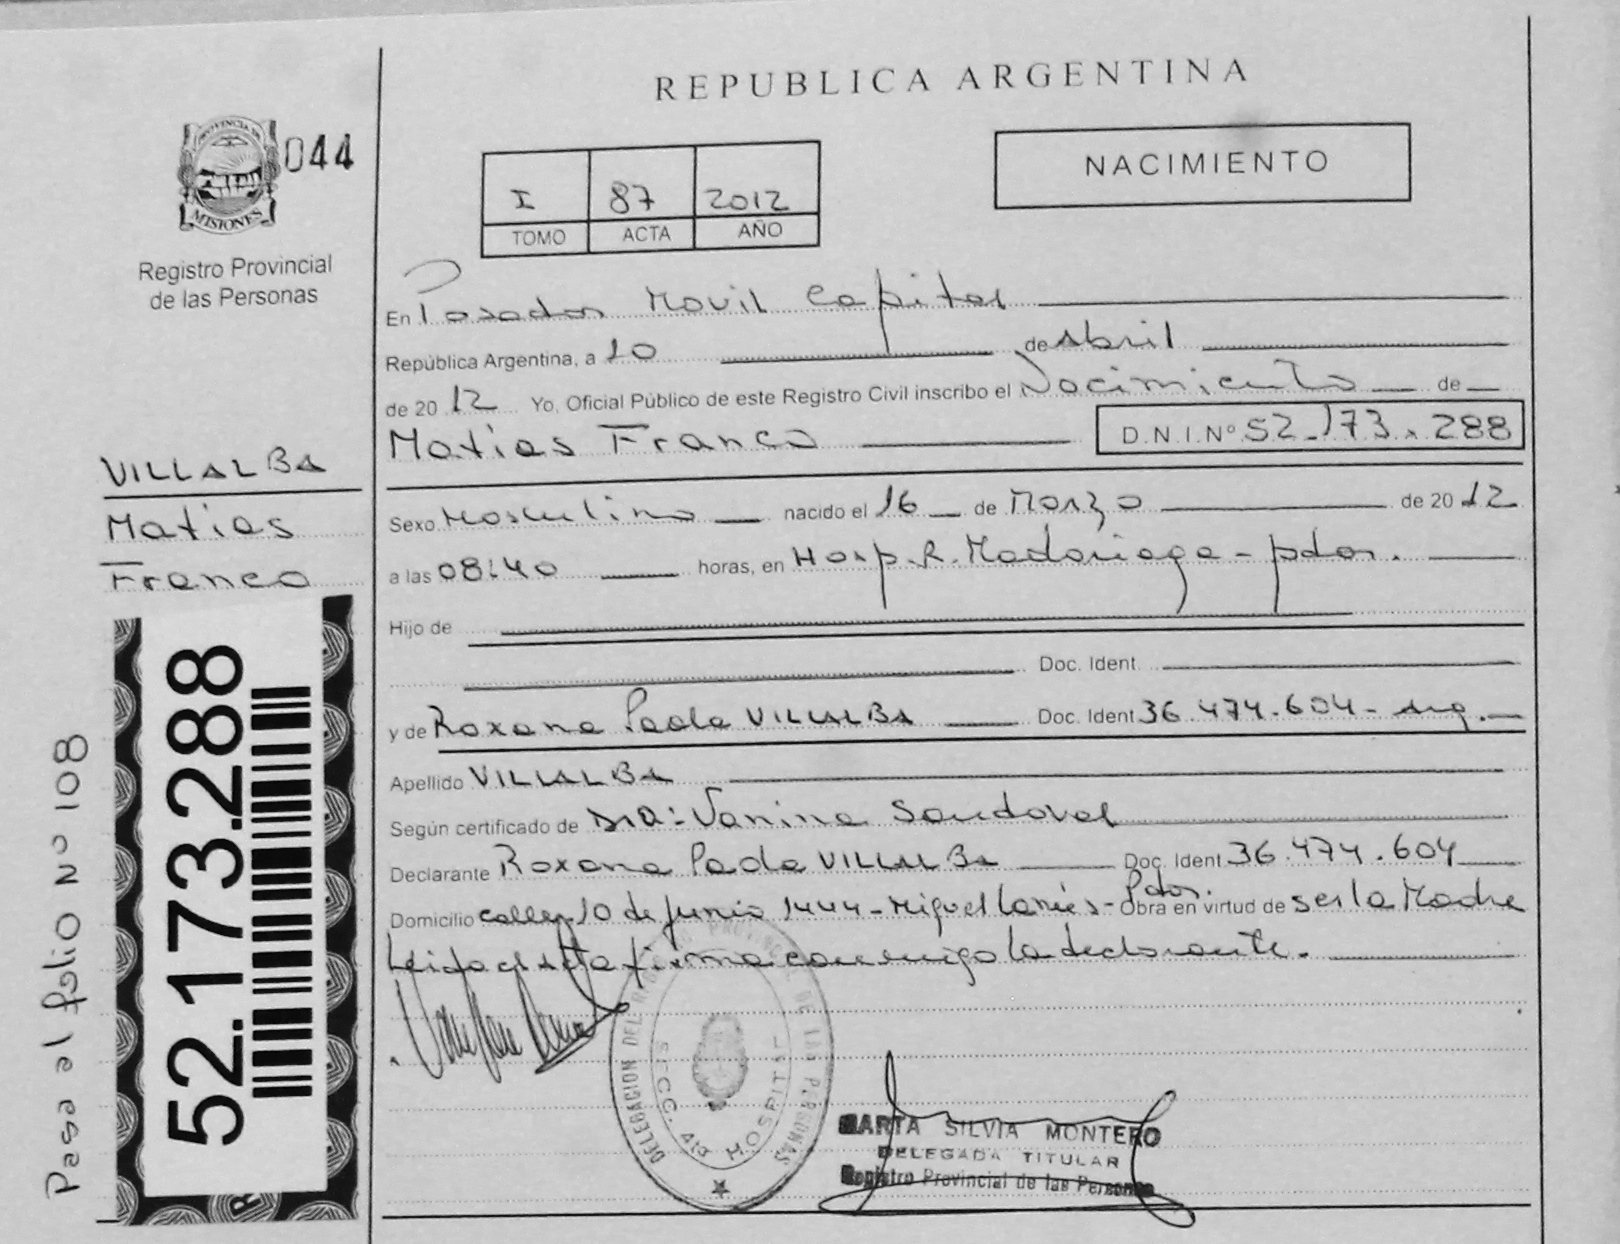 REPUBLICA ARGENTINA
PROVINCIA DE
MISIONES
044
Registro Provincial
de las Personas
I 87 2012
TOMO ACTA AÑO
NACIMIENTO
En Posadas Movil Capital
República Argentina, a 10 de Abril
de 20 12 Yo, Oficial Público de este Registro Civil inscribo el Nacimiento de
Matias Franco D.N.I.Nº 52.173.288
VILLALBA
Matias
Franco
Sexo Masculino nacido el 16 de Marzo de 20 12
a las 08:40 horas, en Hosp. R. Madariaga - pdas.
Hijo de
Doc. Ident.
y de Roxana Paola VILLALBA Doc. Ident. 36.474.604 - Arg.
Apellido VILLALBA
Según certificado de DRA: Vanina Sandoval
Declarante Roxana Paola VILLALBA Doc. Ident. 36.474.604
Domicilio calle 10 de Junio 1444 - Miguel Lanús - Pdas. Obra en virtud de ser la Madre
Leida el Acta firma conmigo la declarante.
52.173.288
Pasa al folio Nº 108
DELEGACION DEL REGISTRO PROVINCIAL DE LAS PERSONAS
HOSPITAL
MARTA SILVIA MONTERO
DELEGADA TITULAR
Registro Provincial de las Personas